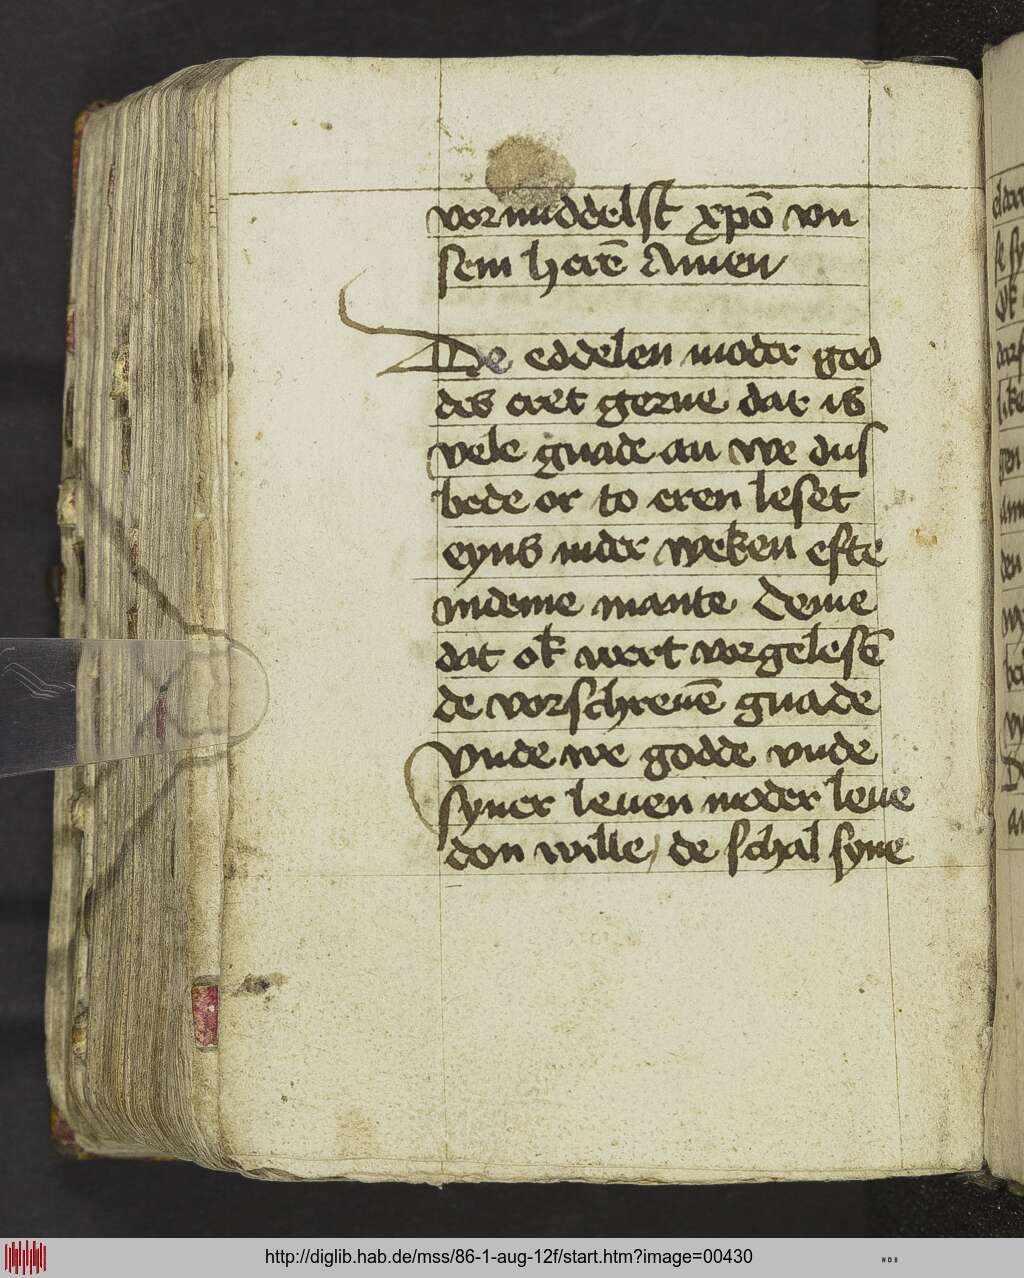 vormiddelst xpō vn
sem herē Amen
De eddelen moder god
des eret gerne dat is
vele gnade an we dus
bede or to eren leset
eyns inder weken efte
indeme mante Deme
dat ok wert vorgelesē
de vorschreuē gnade
vnde we godde vnde
syner leuen moder leue
don wille / de schal syne
http://diglib.hab.de/mss/86-1-aug-12f/start.htm?image=00430